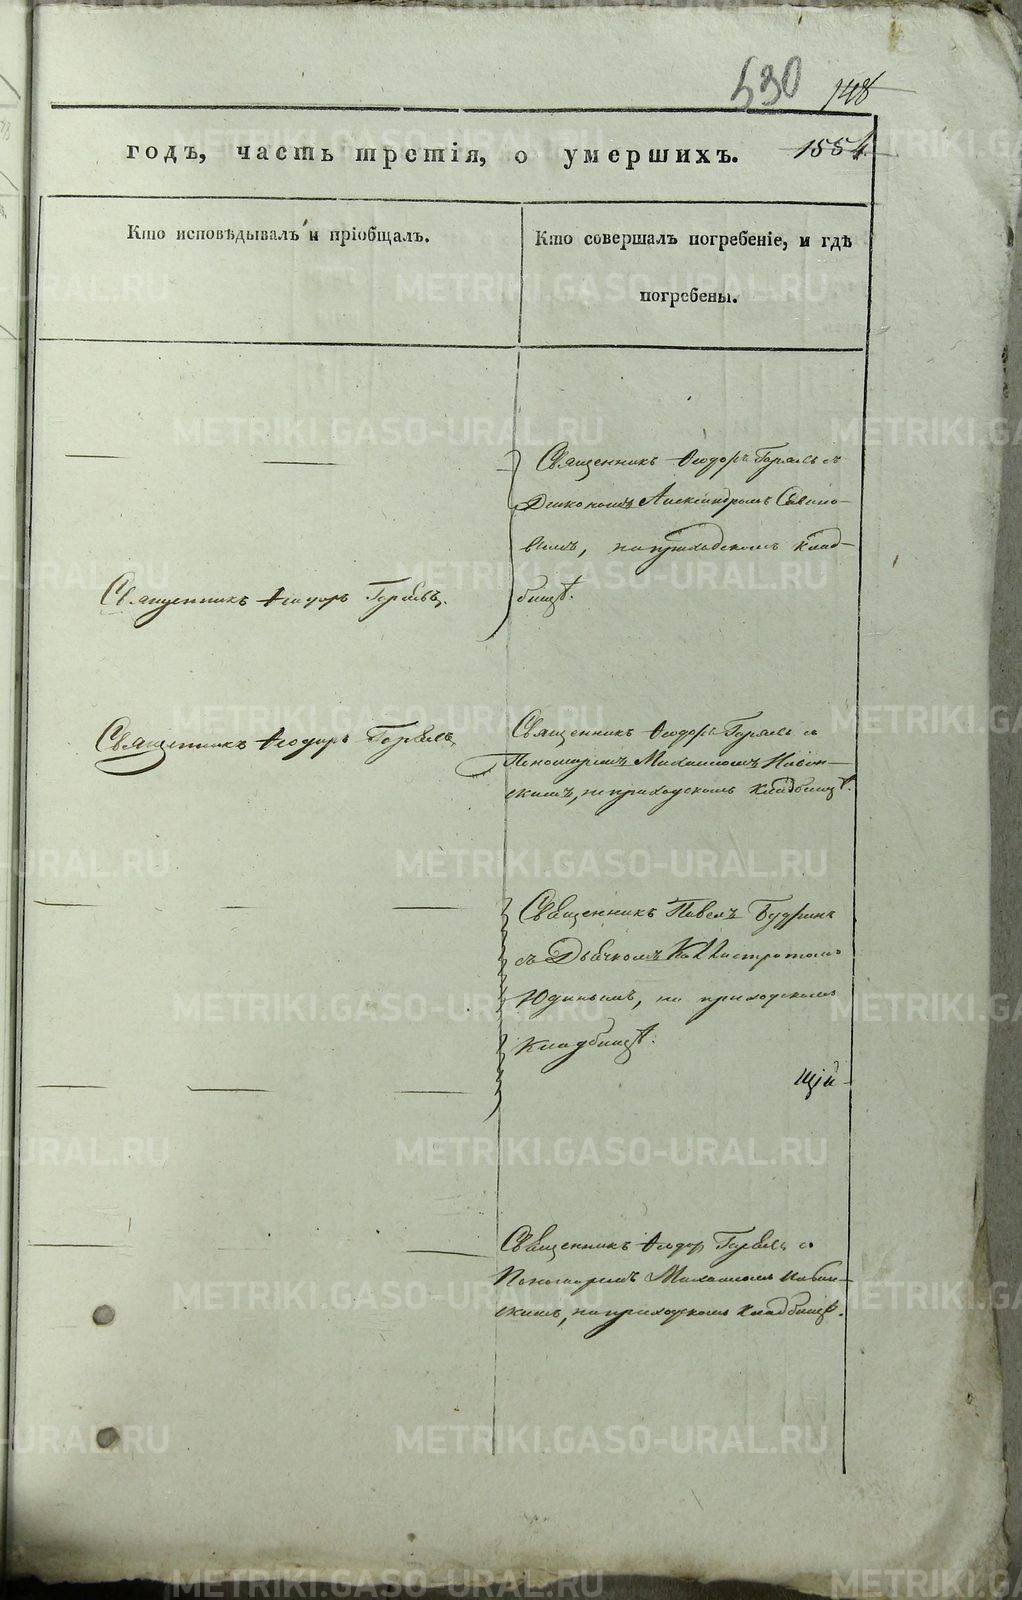 530 148
годъ, часть третія, о умершихъ. 1554.
Кто исповѣдывалъ и пріобщалъ.
Кто совершалъ погребеніе, и гдѣ
погребены.
Священникъ Ѳеодоръ съ
Діакономъ Александромъ
вымъ, на приходскомъ клад-
бищѣ.
Священникъ Ѳеодоръ
Священникъ Ѳеодоръ
Священникъ Ѳеодоръ съ
Пономаремъ Михаиломъ
скимъ, на приходскомъ кладбищѣ.
Священникъ Павелъ Будринъ
съ Дьячкомъ Каллистратомъ
Юдинымъ, на приходскомъ
кладбищѣ.
щій
Священникъ Ѳеодоръ съ
Пономаремъ Михаиломъ
скимъ, на приходскомъ кладбищѣ.
METRIKI.GASO-URAL.RU